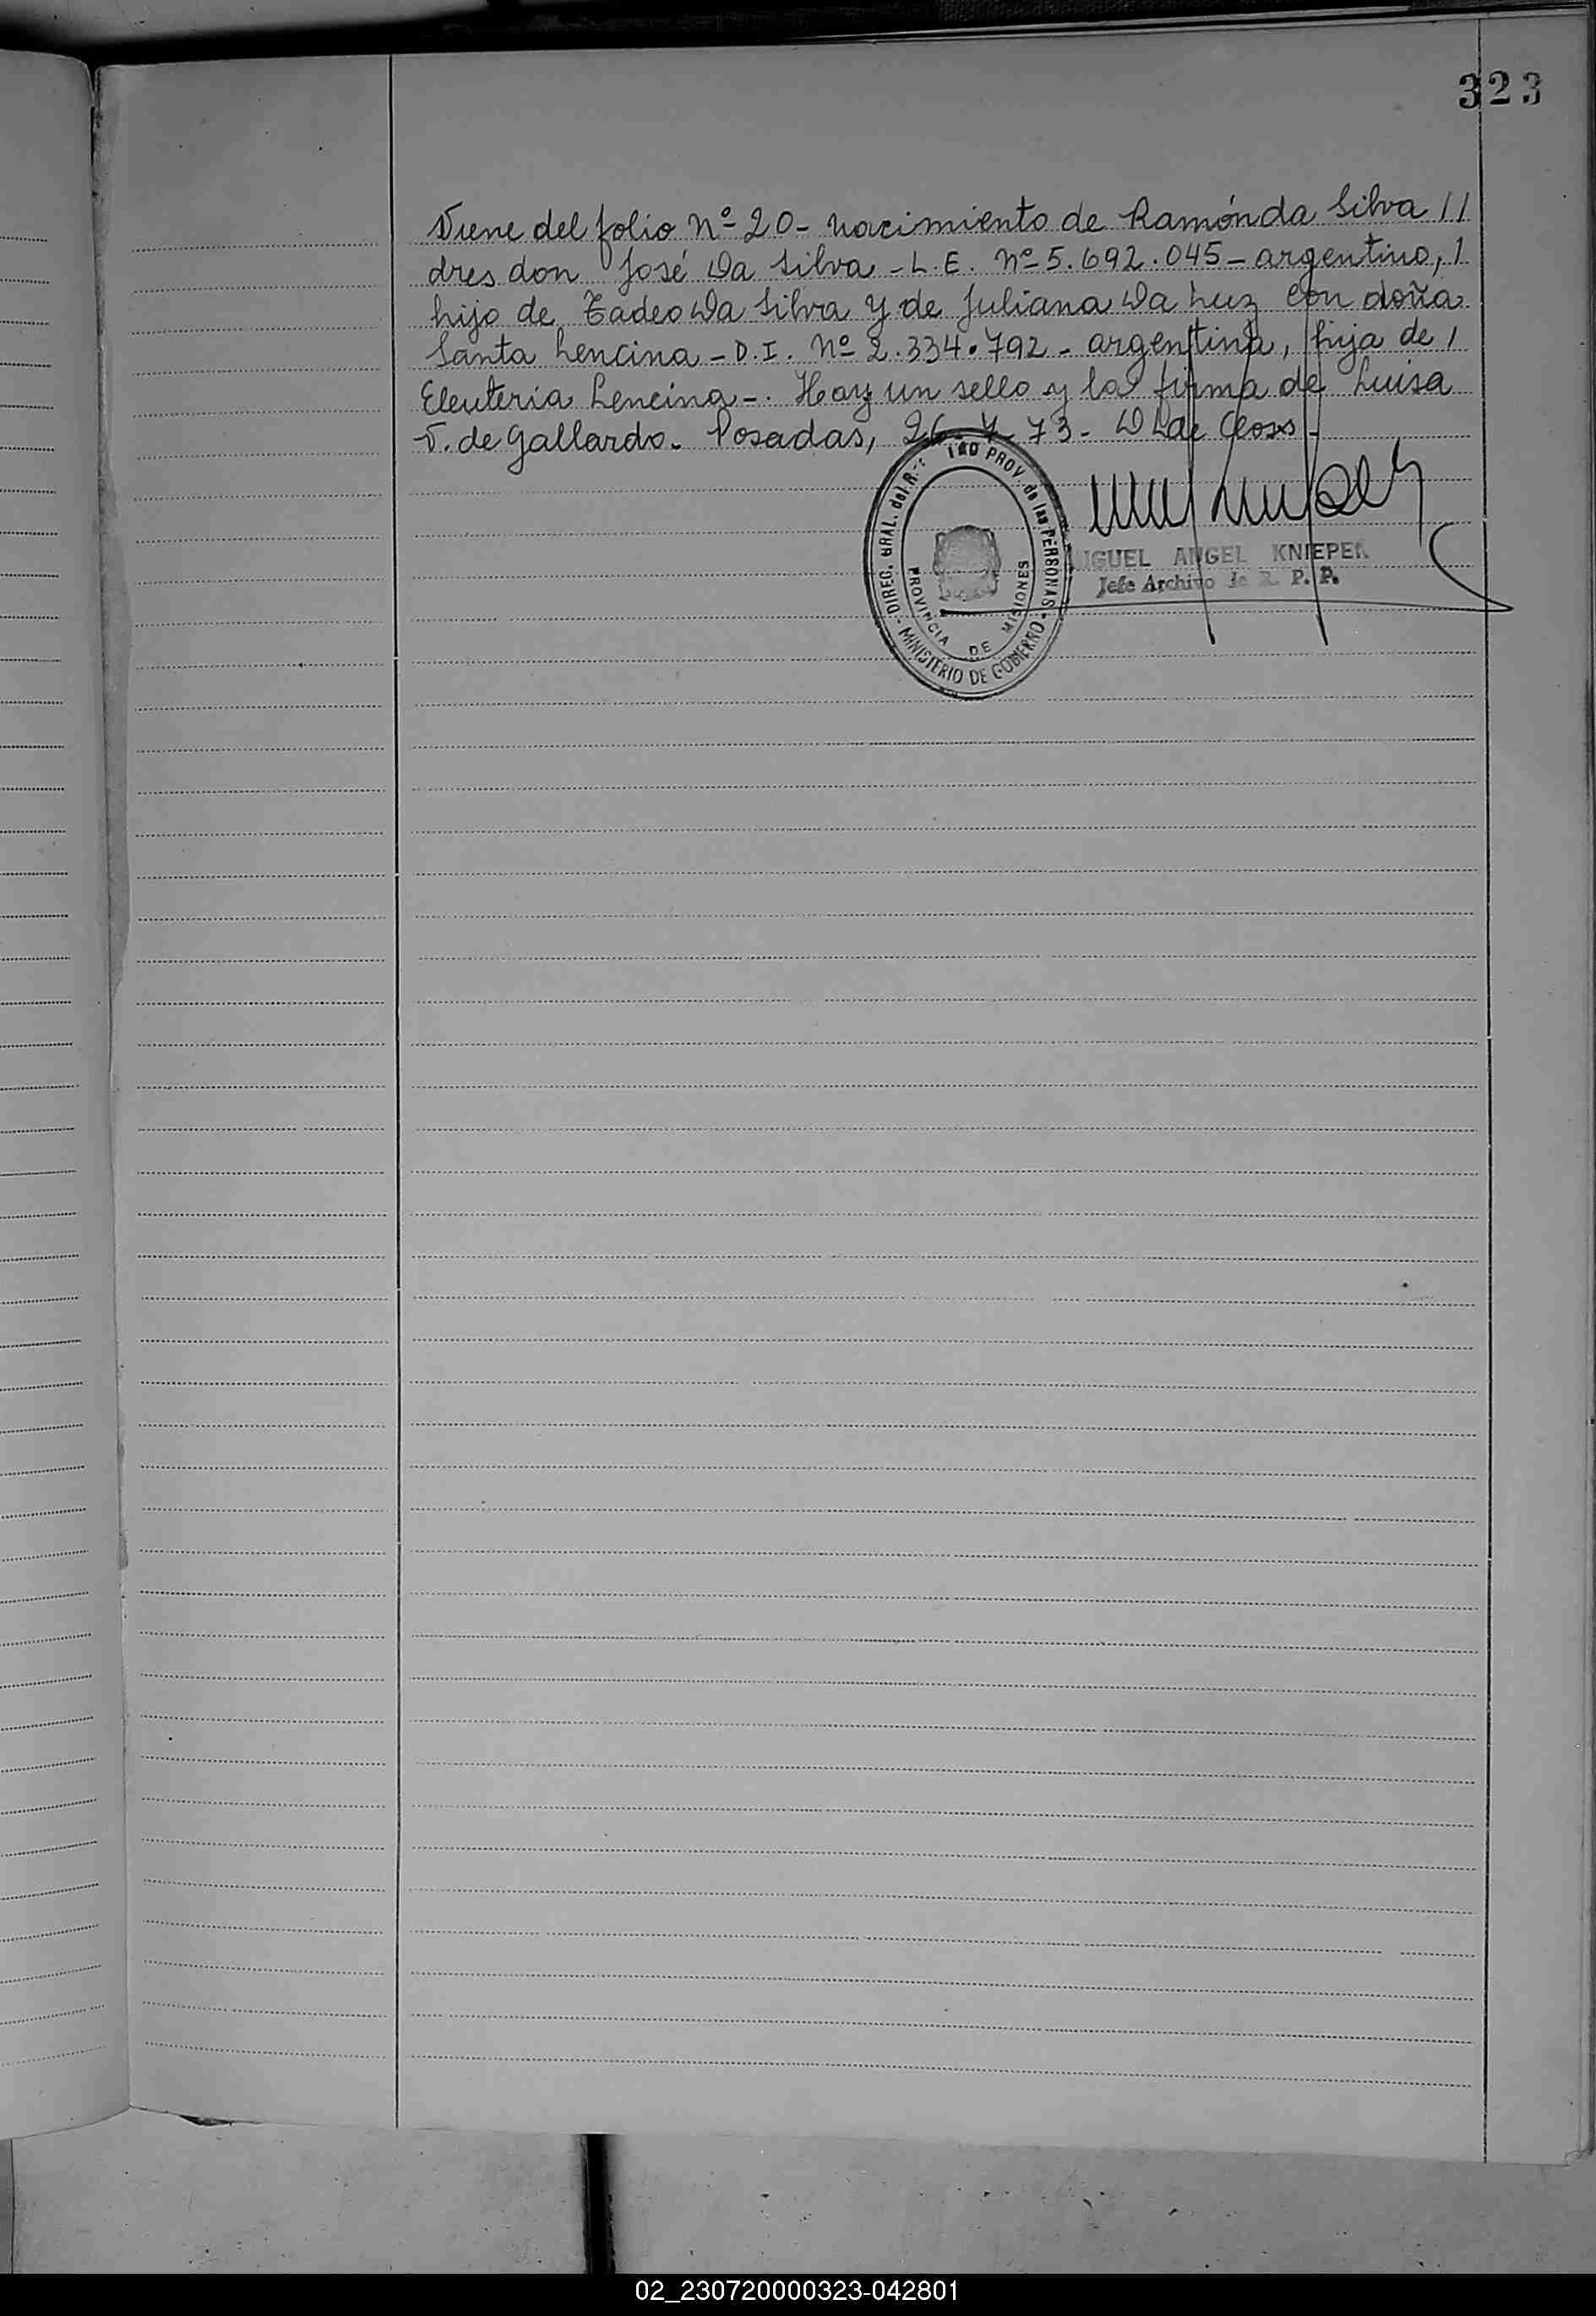 323
Viene del folio Nº 20 - nacimiento de Ramón da Silva //
dres don José Da Silva - L.E. Nº 5.692.045 - argentino, /
hijo de Tadeo Da Silva y de Juliana Da Luz con doña
Santa Lencina - D.I. Nº 2.334.792 - argentina, hija de /
Eleuteria Lencina -. Hay un sello y la firma de Luisa
V. de Gallardo. Posadas, 26-7-73 -
DIREC. GRAL. del R. PROV. de las PERSONAS
MINISTERIO DE GOBIERNO
PROVINCIA DE MISIONES
IGUEL ANGEL KNIEPER
Jefe Archivo de R. P. P.
02_230720000323-042801